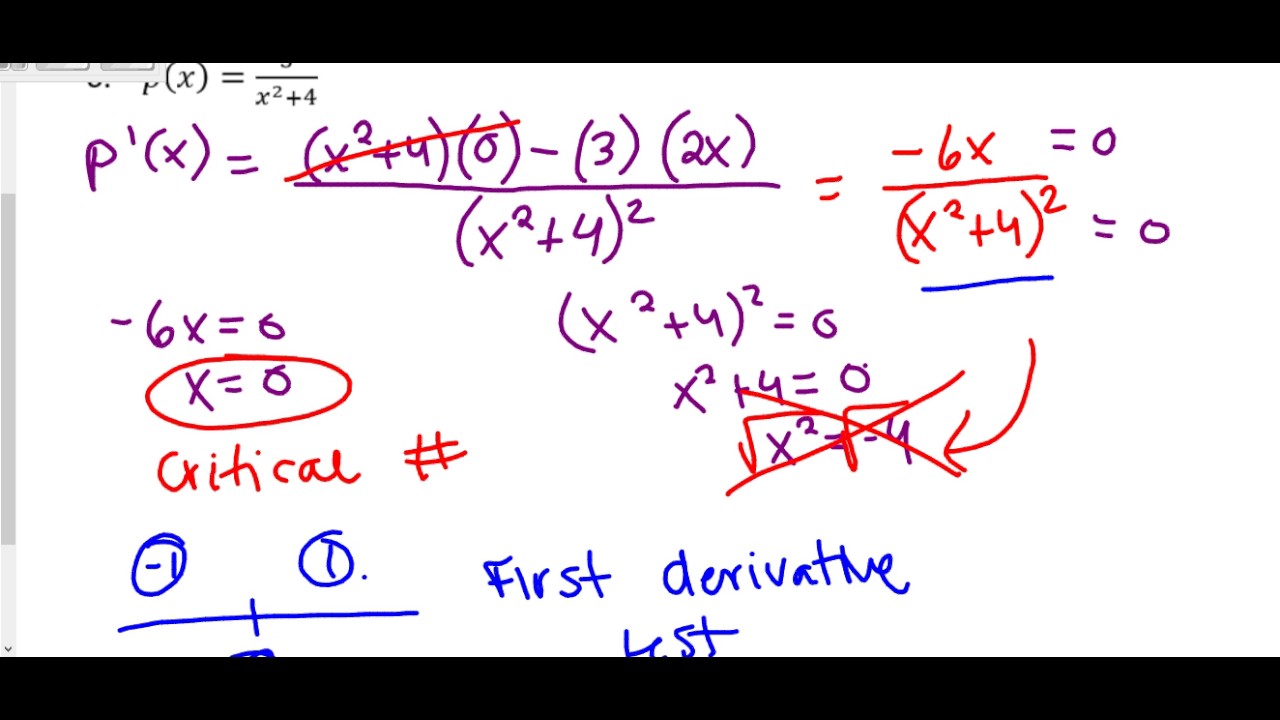 p(x) = 3/(x²+4)
p'(x) = ((x²+4)(0) - (3)(2x))/(x²+4)² = -6x/(x²+4)² = 0 = 0
-6x = 0
x = 0
Critical #
(x²+4)² = 0
x² + 4 = 0
√x² = √-4
-1 1.
First derivative
test